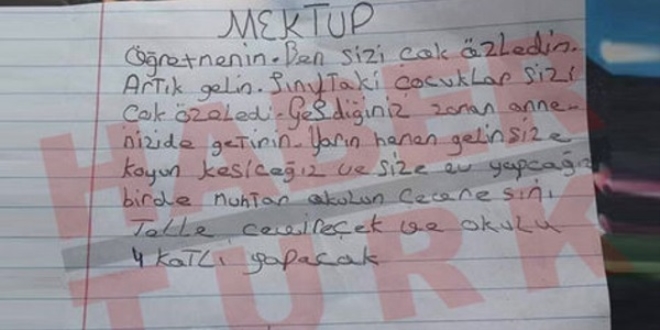 MEKTUP
Öğretmenin. Ben sizi çok özledin.
Artık gelin. Sınıftaki çocuklar sizi
Çok özeledi. Geldiğiniz zaman anne-
nizide getirin. Yarın hemen gelin size
koyun kesiceğiz ve size ev yapcağız
birde muhtar okulun çeveresini
Telle çevireçek ve okulu
4 Katlı yapacak
HABER
TÜRK